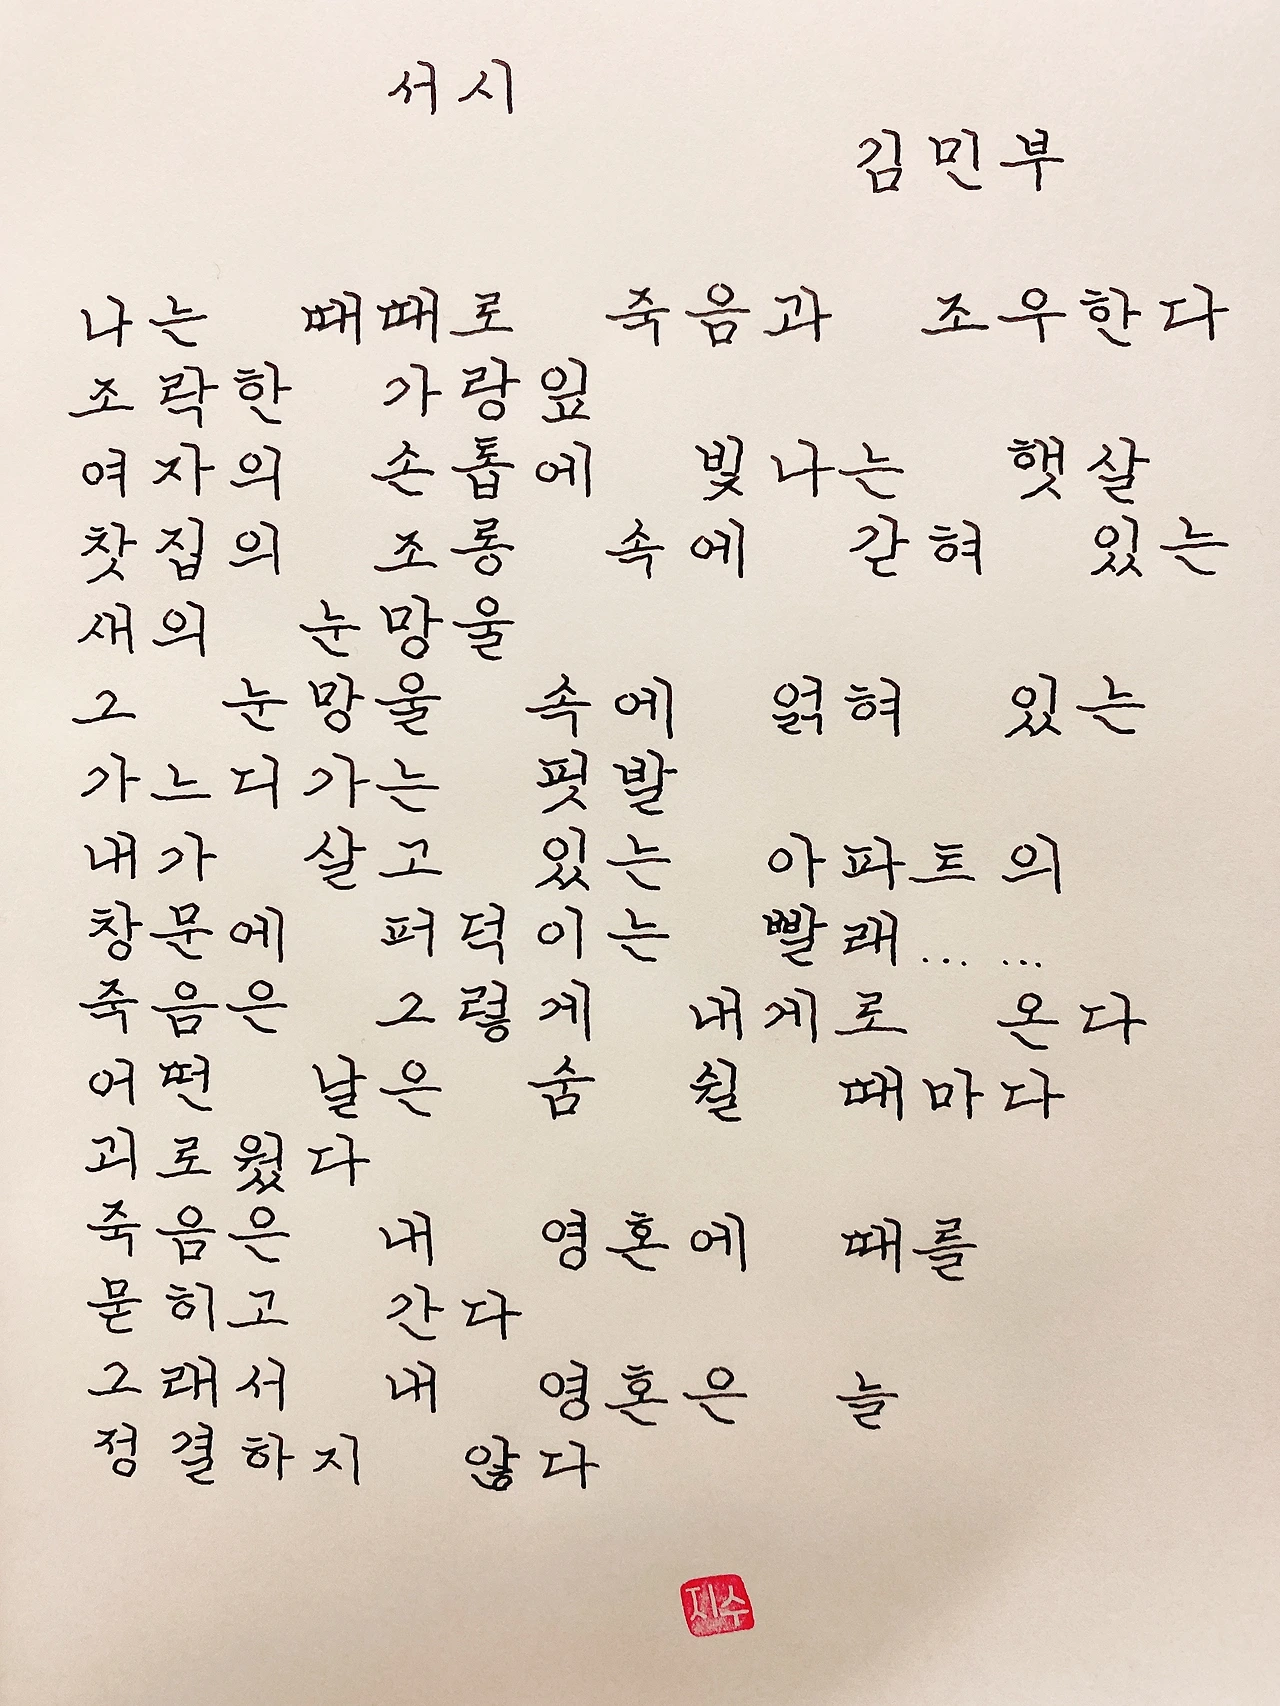 서시
김민부
나는 때때로 죽음과 조우한다
조락한 가랑잎
여자의 손톱에 빛나는 햇살
찻집의 조롱 속에 갇혀 있는
새의 눈망울
그 눈망울 속에 얽혀 있는
가느디가는 핏발
내가 살고 있는 아파트의
창문에 퍼덕이는 빨래... ...
죽음은 그렇게 내게로 온다
어떤 날은 숨 쉴 때마다
괴로웠다
죽음은 내 영혼에 때를
묻히고 간다
그래서 내 영혼은 늘
정결하지 않다
지수